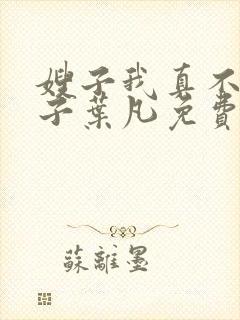 嫂子我真不
子葉凡免費
蘇離墨